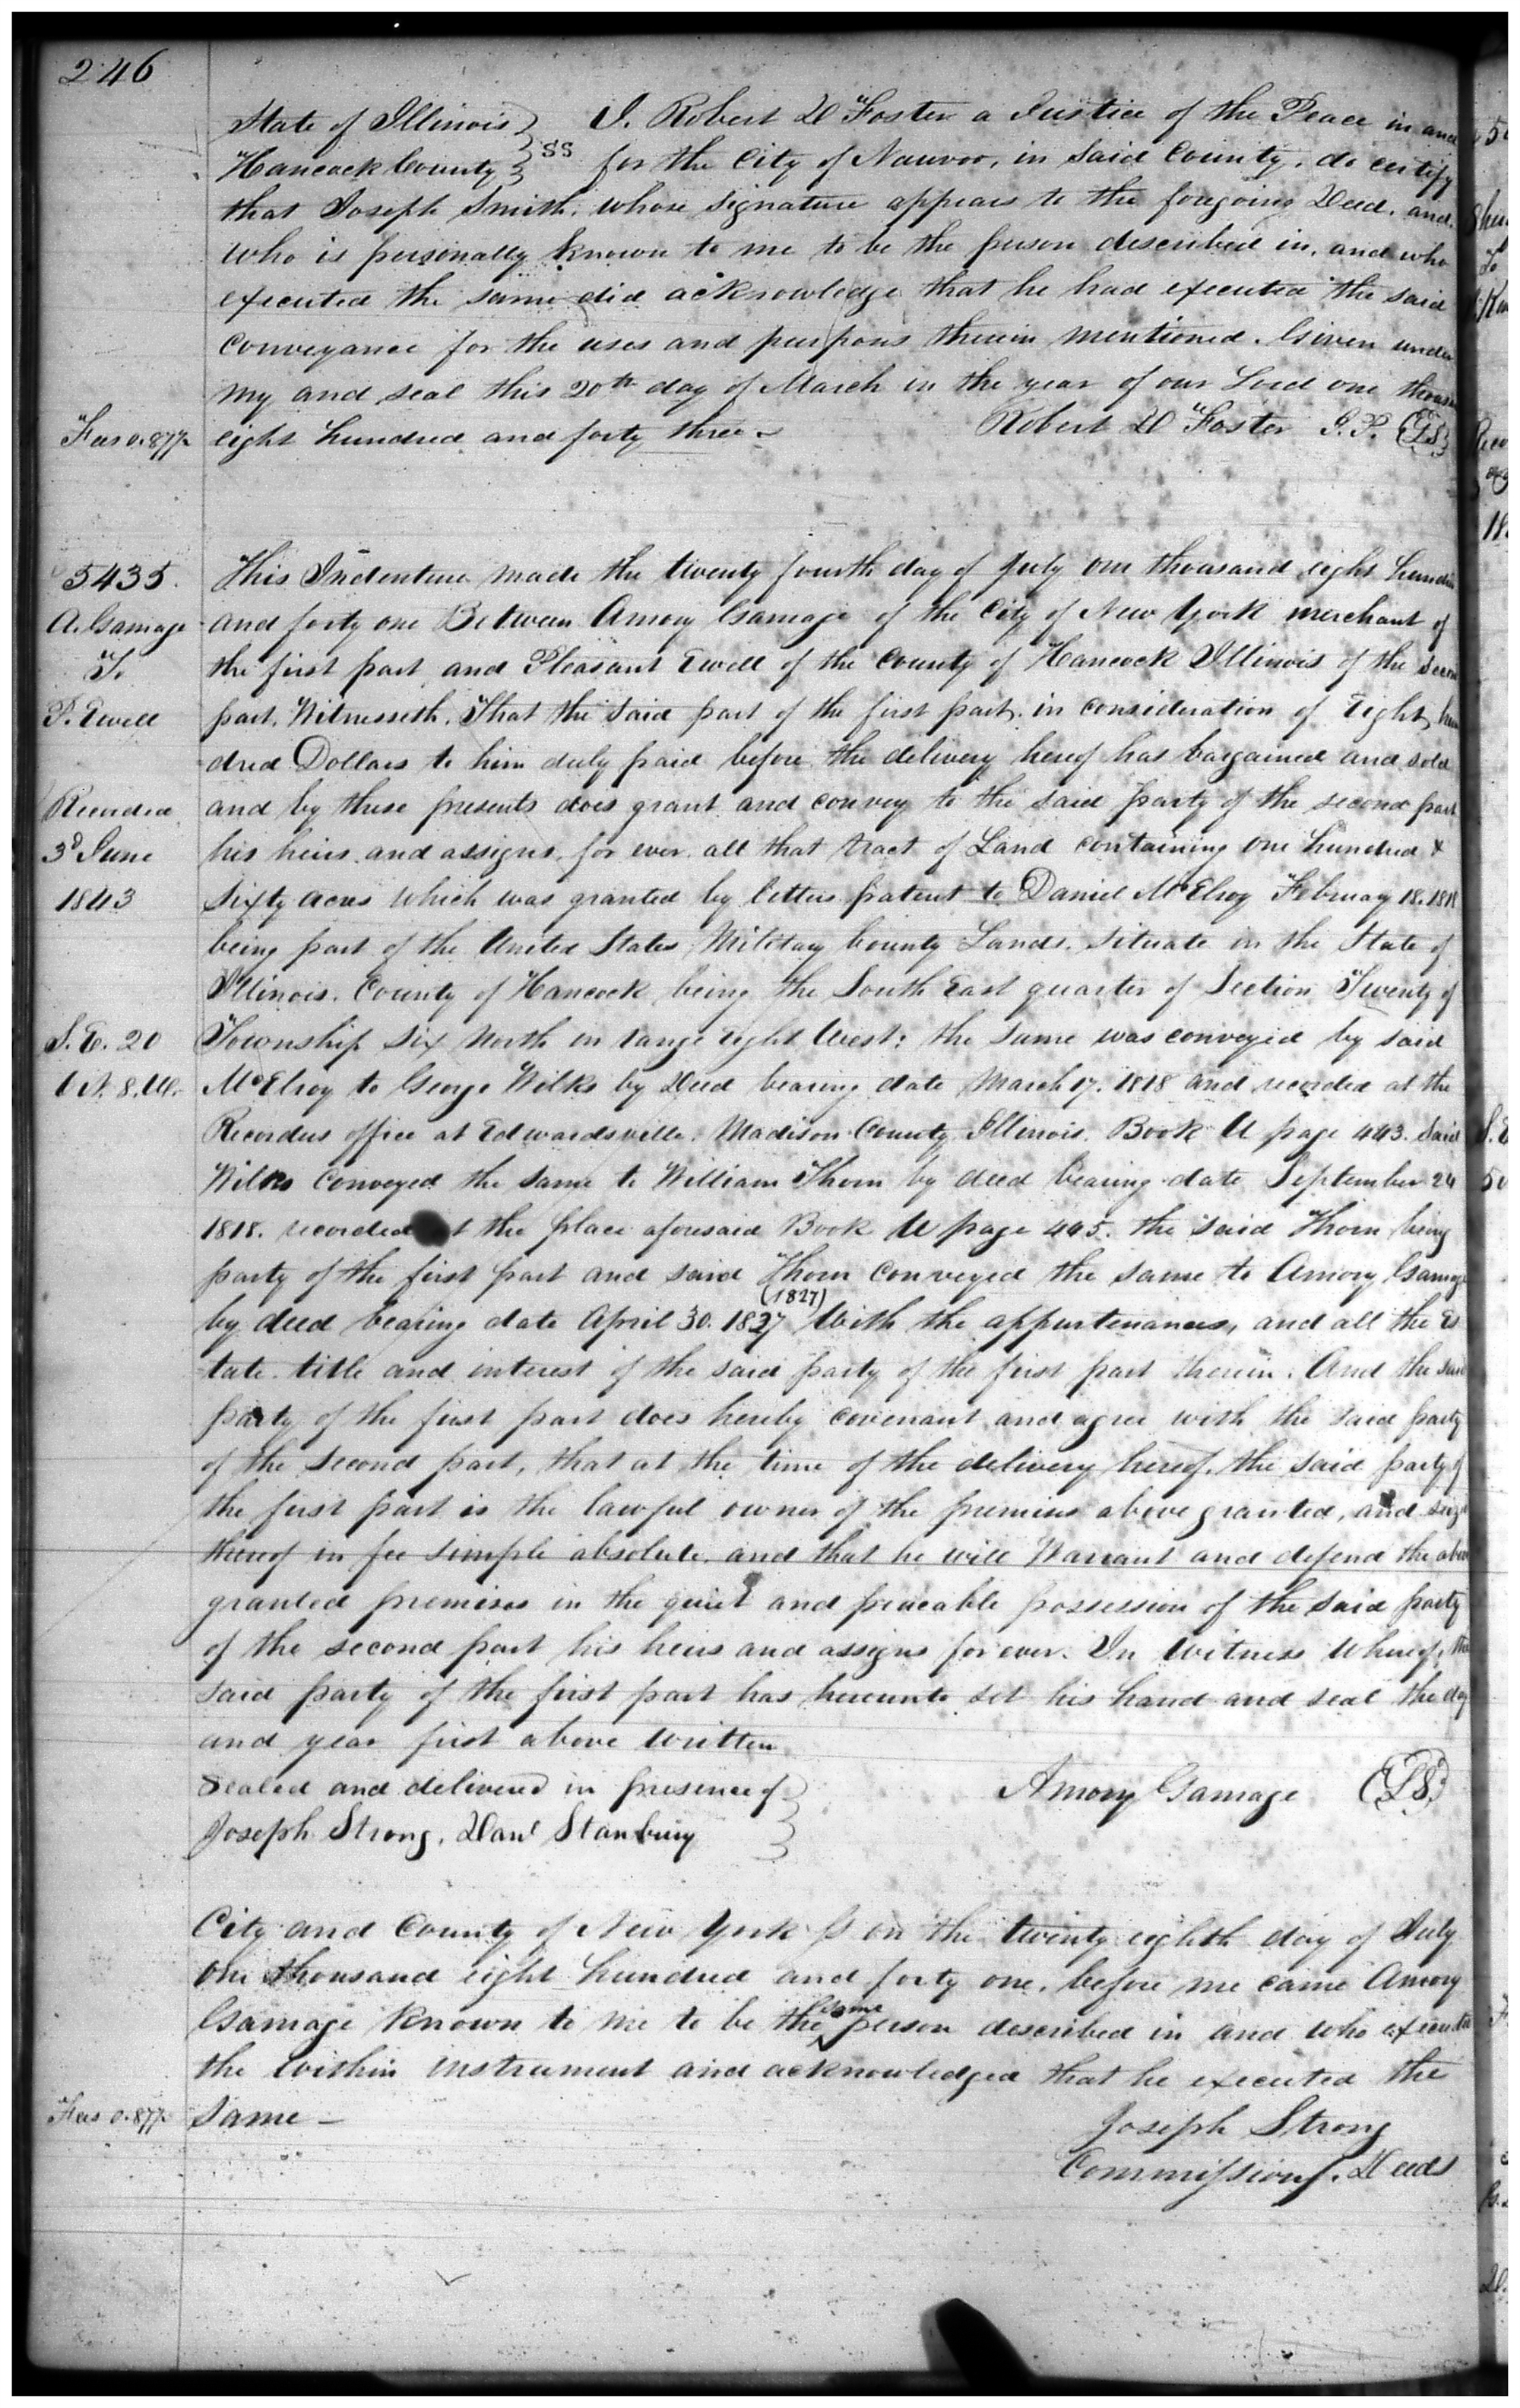 246
State of Illinois } SS I. Robert D Foster a Justice of the Peace in and
Hancock County } for the City of Nauvoo, in Said County. do certify
that Joseph Smith. whose signature appears to the foregoing Deed. and
who is personally known to me to be the person described in, and who
executed the same did acknowledge that he had executed the said
Conveyance for the uses and purposes therein mentioned. Given under
my and seal this 20th day of March in the year of our Lord one
Fees 0.87½ eight hundred and forty three
Robert D Foster J.P. (LS)
5435. This Indenture made the twenty fourth day of July one thousand eight
A. Gamage and forty one Between Amory Gamage of the City of New York merchant of
To the first part and Pleasant Ewell of the County of Hancock Illinois of the
P. Ewell part. Witnesseth. That the Said part of the first part. in consideration of Eight
dred Dollars to him duly paid before the delivery hereof has bargained and sold
Recorded and by these presents does grant and convey to the said party of the second part
3d June his heirs and assigns. for ever. all that tract of Land containing one hundred &
1843 sixty acres which was granted by letters patent to Daniel McElroy February 18. 1818
being part of the United States Military bounty Lands. situate in the State of
Illinois. County of Hancock being the South East quarter of Section Twenty of
S.E. 20 Township Six North in range eight West: the same was conveyed by said
6 N. 8. W. McElroy to George Wilks by Deed bearing date March 17. 1818 and recorded at the
Recorders office at Edwardsville. Madison County Illinois. Book U page 443. Said
Wilks Conveyed the same to William Thorn by deed bearing date September 24
1818. recorded the place aforesaid Book U page 445. the said Thorn being
party of the first part and said Thorn conveyed the same to Amory Gamage
(1827)
by deed bearing date April 30. 1827 With the appurtenances, and all the Es
tate. title and interest of the said party of the first part therein. And the said
party of the first part does hereby covenant and agree with the said party
of the second part, that at the time of the delivery hereof. the said party of
the first part is the lawful owner of the premises above granted, and
thereof in fee simple absolute. and that he will Warrant and defend the
granted premises in the quiet and peaceable possession of the said party
of the second part his heirs and assigns for ever. In Witness Whereof, the
said party of the first part has hereunto set his hand and seal the day
and year first above written
Sealed and delivered in presence of } Amory Gamage (LS)
Joseph Strong, Stanbury }
City and County of New York on the twenty eighth day of July
One thousand eight hundred and forty one. before me came Amory
same
Gamage known to me to be the person described in and who
the within instrument and acknowledged that he executed the
Fees 0.87½ Same —
Joseph Strong
Commissionr. Deeds